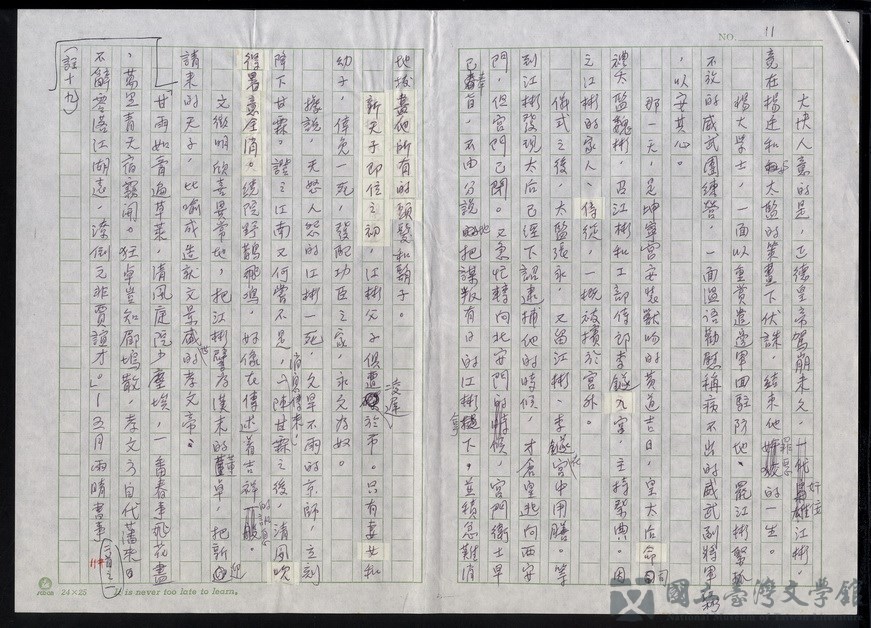 NO. 11
大快人意的是，正德皇帝駕崩未久，一代奸佞江彬，
竟在楊廷和與太監的策畫下伏誅，結束他罪惡的一生。
楊大學士，一面以重賞遣邊軍回駐防地、罷江彬緊抓
不放的威武團練營，一面溫語勸慰稱病不出的威武副將軍
，以安其心。
那一天，是坤寧宮安裝獸吻的黃道吉日，皇太后命司
禮太監魏彬，召江彬和工部侍郎李鐩入宮，主持祭典。因
之江彬的家人、侍從，一概被擯於宮外。
儀式之後，太監張永，又留江彬、李鐩在宮中用膳。等
到江彬發現太后已經下詔逮捕他的時候，才倉皇逃向西安
門，但宮門已閉。又急忙轉向北安門的時候，宮門衛士早
已奉旨，不由分說地把謀叛有日的江彬拿下。並積忿難消
地拔盡他所有的頭髮和鬍子。
新天子即位之初，江彬父子俱遭凌遲於市。只有妻女和
幼子，倖免一死，發配功臣之家，永久為奴。
據說，天怒人怨的江彬一死，久旱不雨的京師，立刻
降下甘霖。證之江南又何嘗不是，消息傳來，一陣甘霖之後，清風吹
得暑意全消。繞院野鵲飛鳴，好像在傳述著吉祥的訊息一般。
文徵明欣喜異常地，把江彬擘為漢末的董卓，把新迎
請來的天子，比喻成造就文景盛世的孝文帝：
「甘雨如膏遍草萊，清風庭院少塵埃，一番春事飛花盡
，萬里青天宿霧開。狂卓豈知郿塢散，孝文今自代藩來。
不解零落江湖遠，潦倒元非賈誼才。」－五月雨晴書事（二首之一）
（註十九）
24×25
It is never too late to learn.
國立臺灣文學館